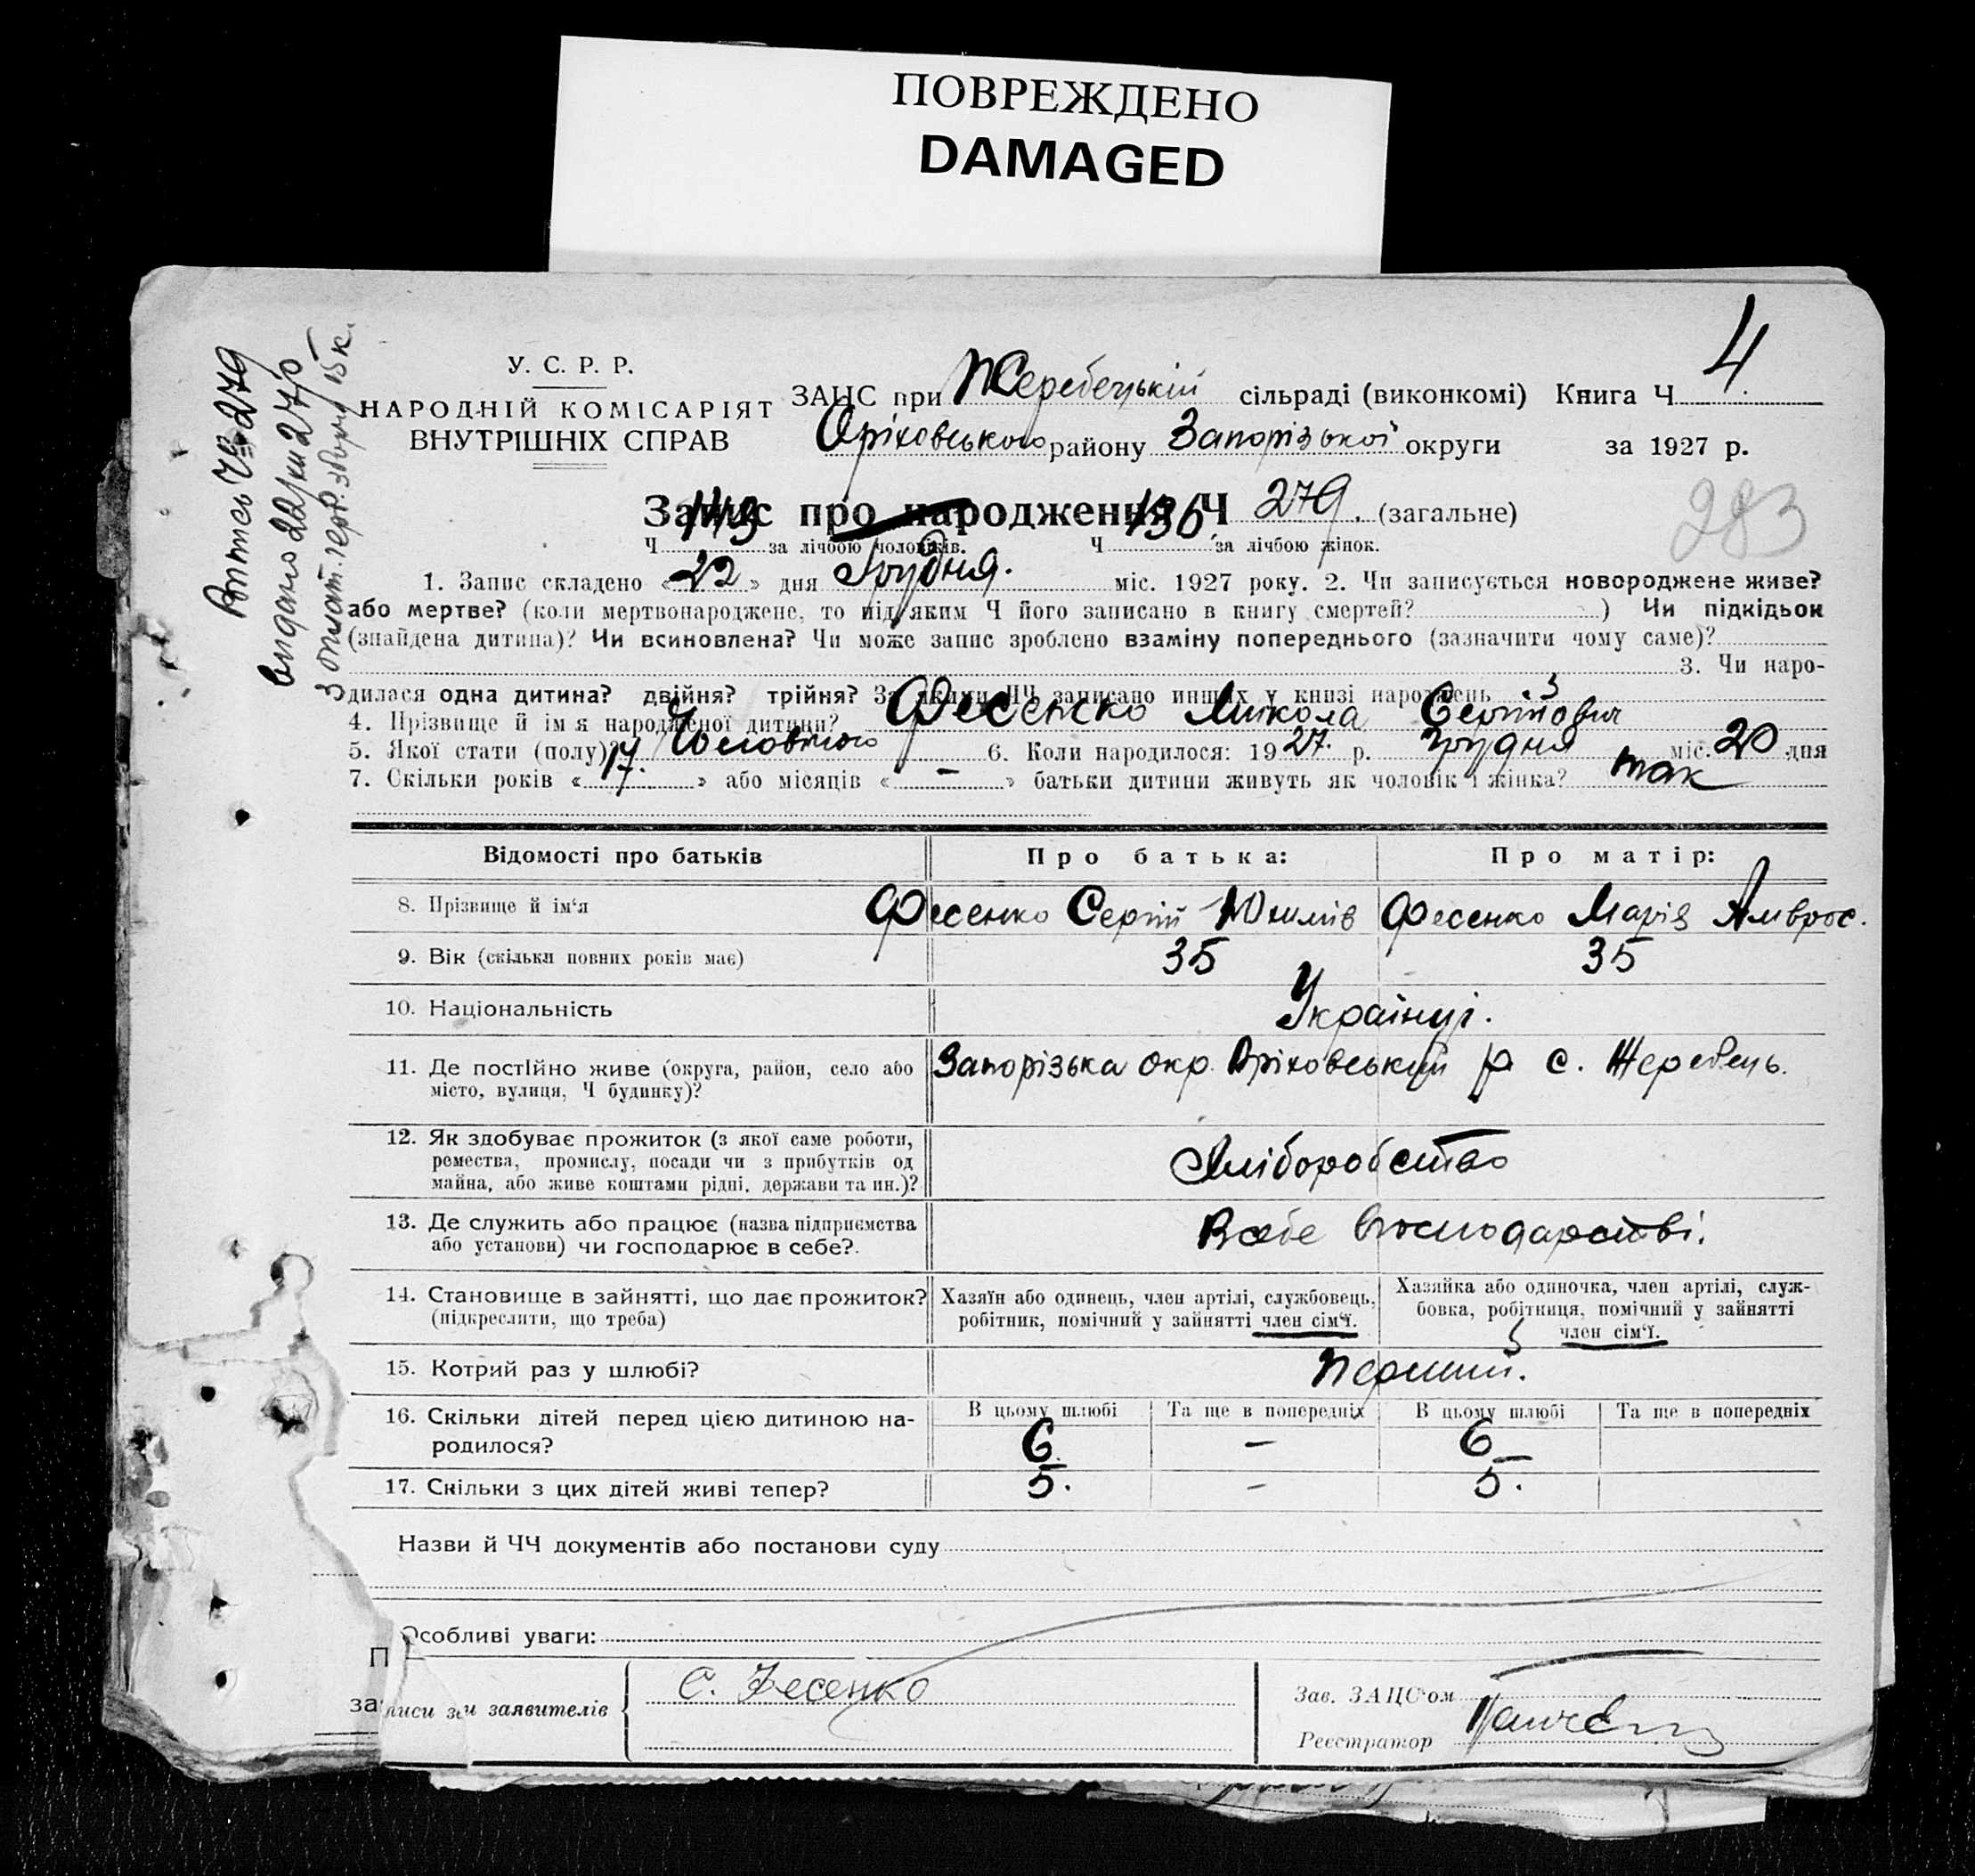 ПОВРЕЖДЕНО
DAMAGED
4.
У. С. Р. Р.
НАРОДНІЙ КОМІСАРІЯТ
ВНУТРІШНІХ СПРАВ
ЗАЦС при Жеребецькій сільраді (виконкомі) Книга Ч
Оріховського району Запорізької округи за 1927 р.
Витясь Ч 279
видано 22/хіі 27 р
З оплат. герб. збором 15 к.
Запис про народження Ч 279. (загальне)
283
Ч 143 за лічбою чоловіків. Ч 136 за лічбою жінок.
1. Запис складено « 22 » дня Грудня. міс. 1927 року. 2. Чи записується новороджене живе?
або мертве? (коли мертвонароджене, то під яким Ч його записано в книгу смертей? ) Чи підкідьок
(знайдена дитина)? Чи всиновлена? Чи може запис зроблено взаміну попереднього (зазначити чому саме)?
3. Чи наро-
дилася одна дитина? двійня? трійня? За якими ЧЧ записано инших у книзі народжень
4. Прізвище й ім'я народженої дитини? Фесенко Микола Сергійович
5. Якої стати (полу)? Чоловічого 6. Коли народилося: 1927. р. Грудня міс. 20 дня
7. Скільки років « 17. » або місяців « – » батьки дитини живуть як чоловік і жінка? так
Відомості про батьків Про батька: Про матір:
8. Прізвище й ім'я Фесенко Сергій Юхимів Фесенко Марія Амврос.
9. Вік (скільки повних років має) 35 35
10. Національність Українці.
11. Де постійно живе (округа, район, село або
місто, вулиця, Ч будинку)?
Запорізька окр. Оріховський р с. Жеребець.
12. Як здобуває прожиток (з якої саме роботи,
ремества, промислу, посади чи з прибутків од
майна, або живе коштами рідні, держави та ин.)?
Хліборобство
13. Де служить або працює (назва підприємства
або установи) чи господарює в себе?
В себе в господарстві.
14. Становище в зайнятті, що дає прожиток?
(підкреслити, що треба)
Хазяїн або одинець, член артілі, службовець,
робітник, помічний у зайнятті член сім'ї.
Хазяйка або одиночка, член артілі, служ-
бовка, робітниця, помічний у зайнятті
член сім'ї.
15. Котрий раз у шлюбі? Перший.
16. Скільки дітей перед цією дитиною на-
родилося?
В цьому шлюбі Та ще в попередніх В цьому шлюбі Та ще в попередніх
6 – 6
17. Скільки з цих дітей живі тепер? 5. – 5.
Назви й ЧЧ документів або постанови суду
Особливі уваги:
П
за писи заявителів
С. Фесенко
Зав. ЗАЦС'ом
Реєстратор